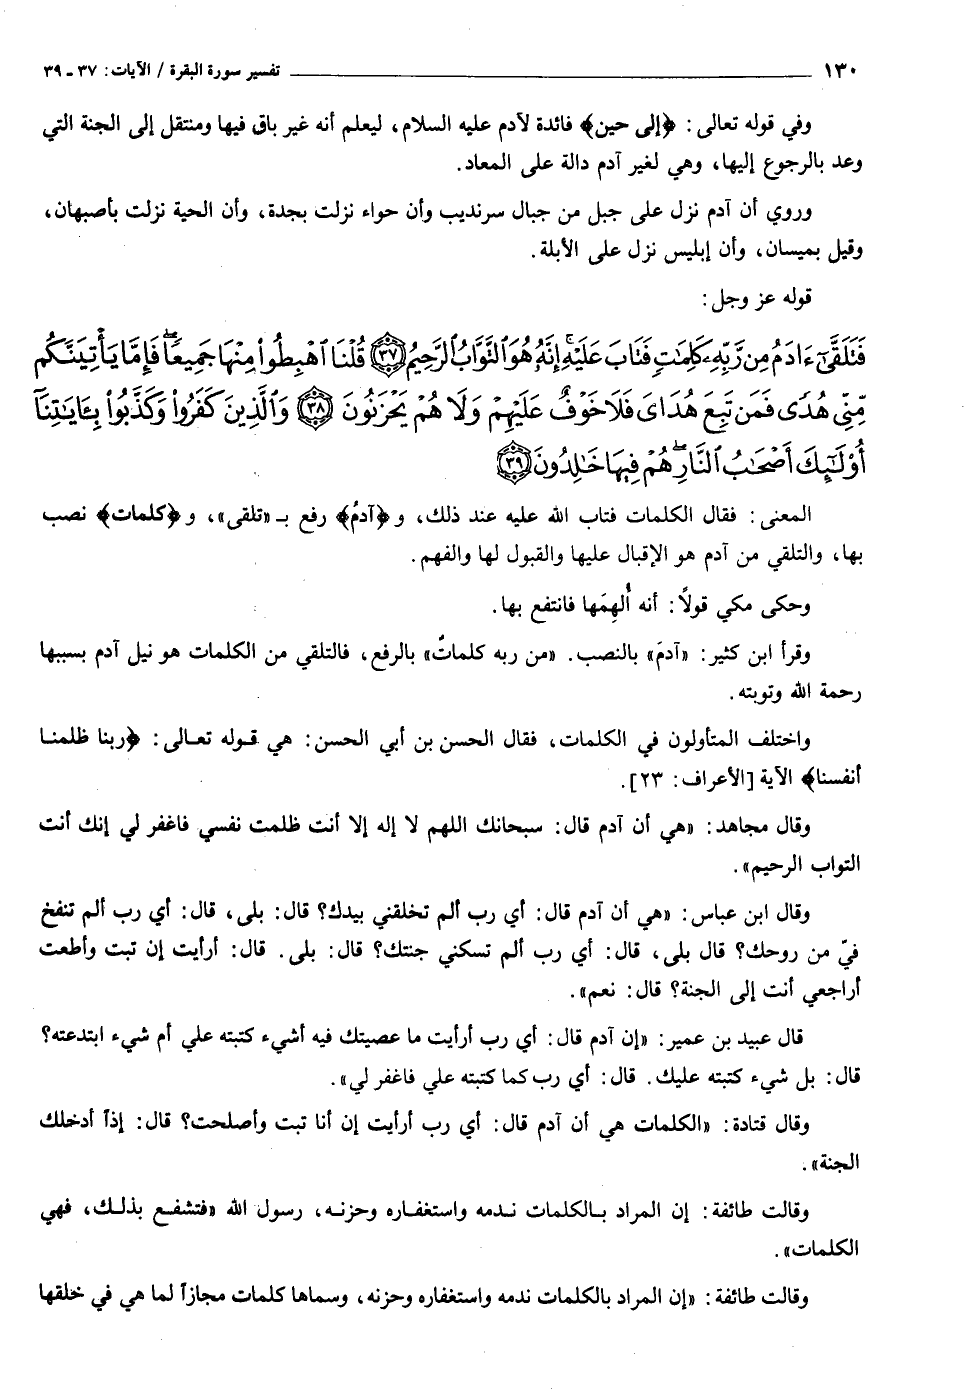 ١٣٠ ــــــــــ تفسير سورة البقرة / الآيات: ٣٧ ـ ٣٩
وفي قوله تعالى: ﴿إلى حين﴾ فائدة لآدم عليه السلام، ليعلم أنه غير باق فيها ومنتقل إلى الجنة التي
وعد بالرجوع إليها، وهي لغير آدم دالة على المعاد.
وروي أن آدم نزل على جبل من جبال سرنديب وأن حواء نزلت بجدة، وأن الحية نزلت بأصبهان،
وقيل بميسان، وأن إبليس نزل على الأبلة.
قوله عز وجل:
فَتَلَقَّىٰٓ ءَادَمُ مِن رَّبِّهِۦ كَلِمَٰتٍ فَتَابَ عَلَيْهِۚ إِنَّهُۥ هُوَ ٱلتَّوَّابُ ٱلرَّحِيمُ ﴿٣٧﴾ قُلْنَا ٱهْبِطُوا۟ مِنْهَا جَمِيعًاۖ فَإِمَّا يَأْتِيَنَّكُم
مِّنِّى هُدًى فَمَن تَبِعَ هُدَاىَ فَلَا خَوْفٌ عَلَيْهِمْ وَلَا هُمْ يَحْزَنُونَ ﴿٣٨﴾ وَٱلَّذِينَ كَفَرُوا۟ وَكَذَّبُوا۟ بِـَٔايَٰتِنَآ
أُو۟لَٰٓئِكَ أَصْحَٰبُ ٱلنَّارِۖ هُمْ فِيهَا خَٰلِدُونَ ﴿٣٩﴾
المعنى: فقال الكلمات فتاب الله عليه عند ذلك، و﴿آدمُ﴾ رفع بـ«تلقى»، و﴿كلمات﴾ نصب
بها، والتلقي من آدم هو الإقبال عليها والقبول لها والفهم.
وحكى مكي قولاً: أنه أُلهِمَها فانتفع بها.
وقرأ ابن كثير: «آدمَ» بالنصب. «من ربه كلماتٌ» بالرفع، فالتلقي من الكلمات هو نيل آدم بسببها
رحمة الله وتوبته.
واختلف المتأولون في الكلمات، فقال الحسن بن أبي الحسن: هي قوله تعالى: ﴿ربنا ظلمنا
أنفسنا﴾ الآية [الأعراف: ٢٣].
وقال مجاهد: «هي أن آدم قال: سبحانك اللهم لا إله إلا أنت ظلمت نفسي فاغفر لي إنك أنت
التواب الرحيم».
وقال ابن عباس: «هي أن آدم قال: أي رب ألم تخلقني بيدك؟ قال: بلى، قال: أي رب ألم تنفخ
فيّ من روحك؟ قال بلى، قال: أي رب ألم تسكني جنتك؟ قال: بلى. قال: أرأيت إن تبت وأطعت
أراجعي أنت إلى الجنة؟ قال: نعم».
قال عبيد بن عمير: «إن آدم قال: أي رب أرأيت ما عصيتك فيه أشيء كتبته علي أم شيء ابتدعته؟
قال: بل شيء كتبته عليك. قال: أي رب كما كتبته علي فاغفر لي».
وقال قتادة: «الكلمات هي أن آدم قال: أي رب أرأيت إن أنا تبت وأصلحت؟ قال: إذاً أدخلك
الجنة».
وقالت طائفة: إن المراد بالكلمات ندمه واستغفاره وحزنه، رسول الله «فتشفع بذلك، فهي
الكلمات».
وقالت طائفة: «إن المراد بالكلمات ندمه واستغفاره وحزنه، وسماها كلمات مجازاً لما هي في خلقها